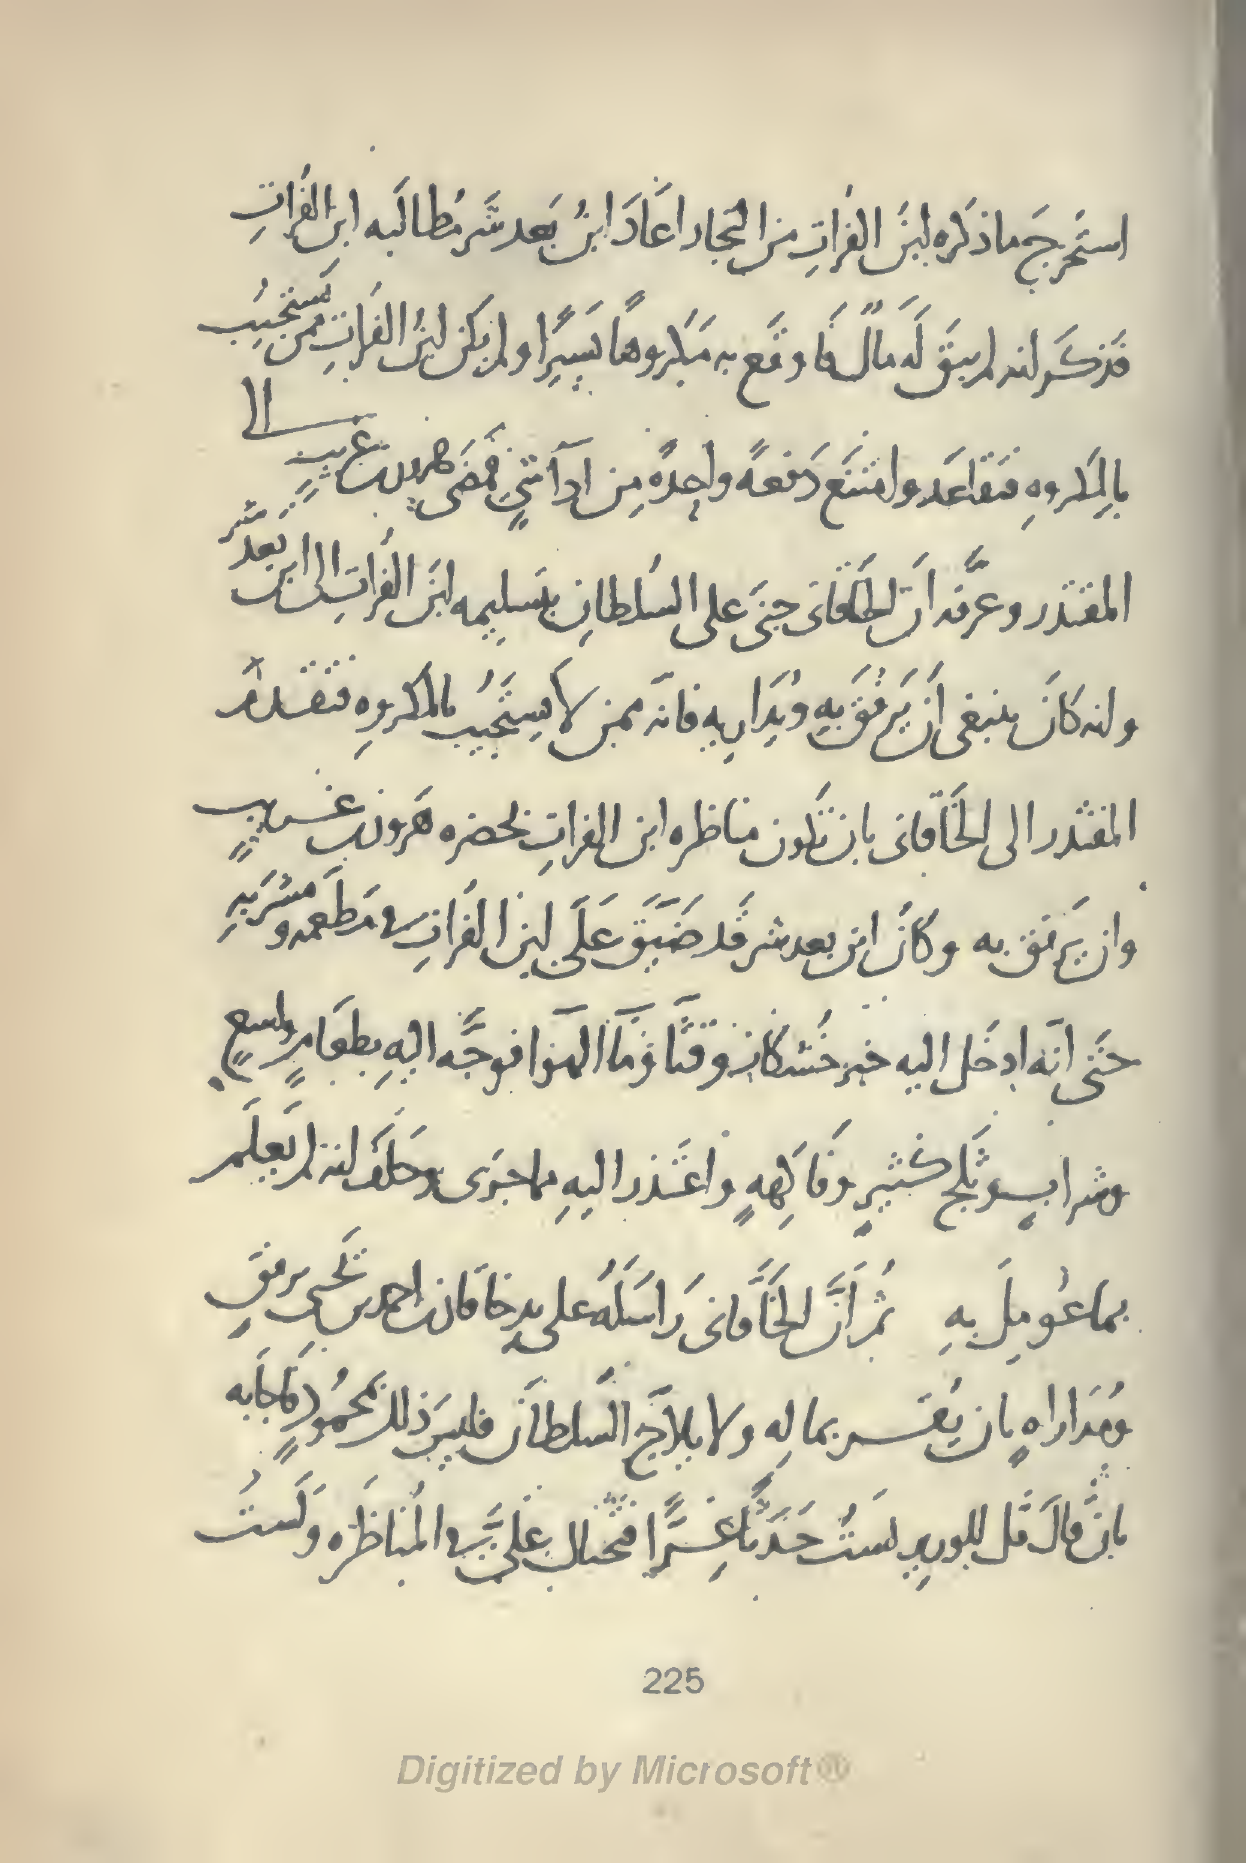 استخرج ما ذكره ابن الفرات من التجار اعاد ابن بعد شر مطالبه ابن الفرات
فذكر انه لم يبق له مال فاوقع به مكروها يسيرا ولم يكن ابن الفرات ممن يستجيب
بالمكروه فتقاعد وامتنع دفعة واحدة من ادآ شي فمضى هرون بن غريب الى
المقتدر وعرفه ان الخاقانى جنى على السلطان بتسليمه ابن الفرات الى ابن بعد شر
وانه كان ينبغى أن يرفق به ويداريه فانه ممن لا يستجيب بالمكروه فتقدم
المقتدر الى الخاقانى بان تكون مناظره ابن الفرات بحضره هرون بن غريب
وان يرفق به وكان ابن بعد شر قد ضيق على ابن الفرات فى مطعمه ومشربه
حتى انه ادخل اليه خبز خشكار وقثا ومآ الهوا فوجه اليه بطعام واسع
وشراب وثلج كثير وفاكهة واعتذر اليه مما جرى وحلف انه لم يعلم
بما عومل به ثم أن الخاقانى راسله على يد خاقان بن احمد بن يحيى برفق
ومداراه بان يقر بماله ولا يلاج السلطان فليس ذلك بمحمود فاجابه
بان قال قل للوزير لست حدثا غرا فتحتال على فى المناظره ولست
225
Digitized by Microsoft®